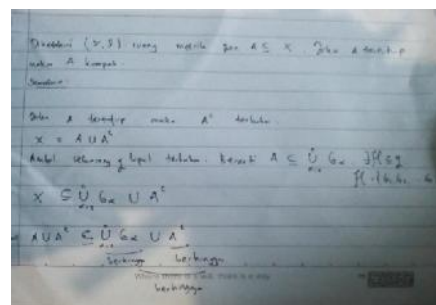 Diketahui (X, d) ruang metrik dan A ⊆ X. Jika A tertutup
maka A kompak.
Jika A tertutup maka Aᶜ terbuka.
X = A ∪ Aᶜ
Ambil sebarang g liput terbuka. Berarti A ⊆ ∪ Gα. ∃ ⊆ g
X ⊆ ∪ Gα ∪ Aᶜ
A ∪ Aᶜ ⊆ ∪ Gα ∪ Aᶜ
berhingga berhingga
berhingga